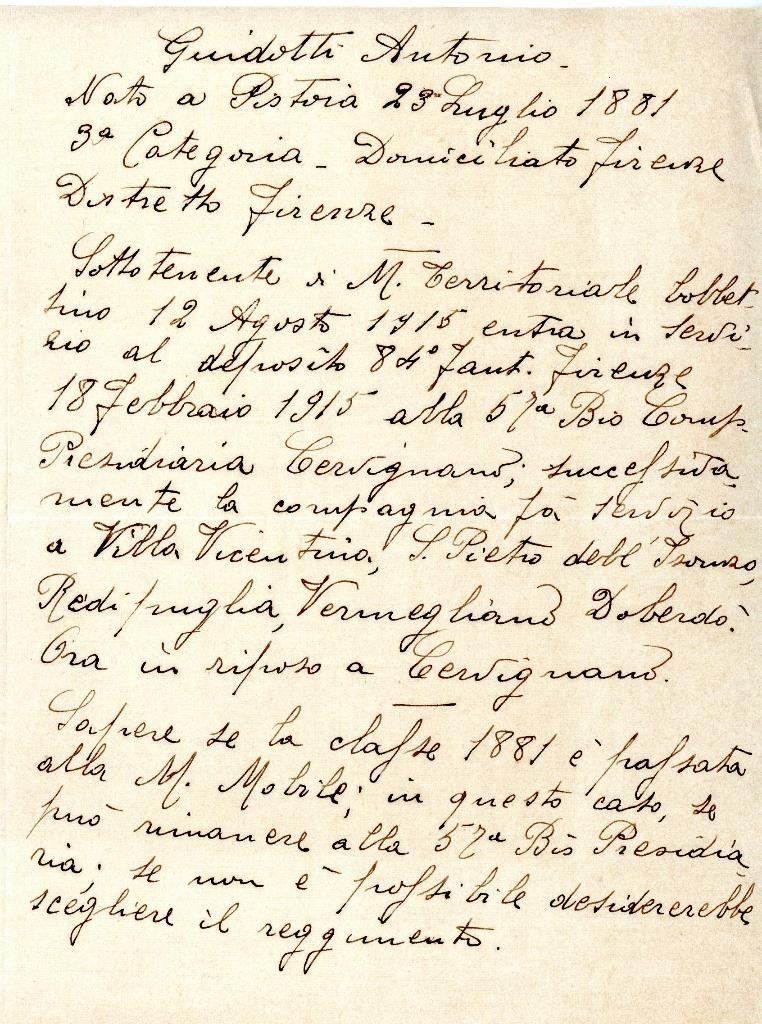 Guidotti Antonio -
Nato a Pistoia 23 Luglio 1881
3ª Categoria - Domiciliato Firenze
Distretto Firenze -
Sottotenente di M. Territoriale bollet-
tino 12 Agosto 1915 entra in servi-
zio al deposito 84º Fant. Firenze
18 Febbraio 1915 alla 57ª Bis Comp.
Presidiaria Cervignano; successiva-
mente la compagnia fà servizio
a Villa Vicentina, S. Pietro dell'Isonzo,
Redipuglia, Vermegliano Doberdò.
Ora in riposo a Cervignano.
Sapere se la classe 1881 è passata
alla M. Mobile; in questo caso, se
può rimanere alla 57ª Bis Presidia-
ria; se non è possibile desidererebbe
scegliere il reggimento.